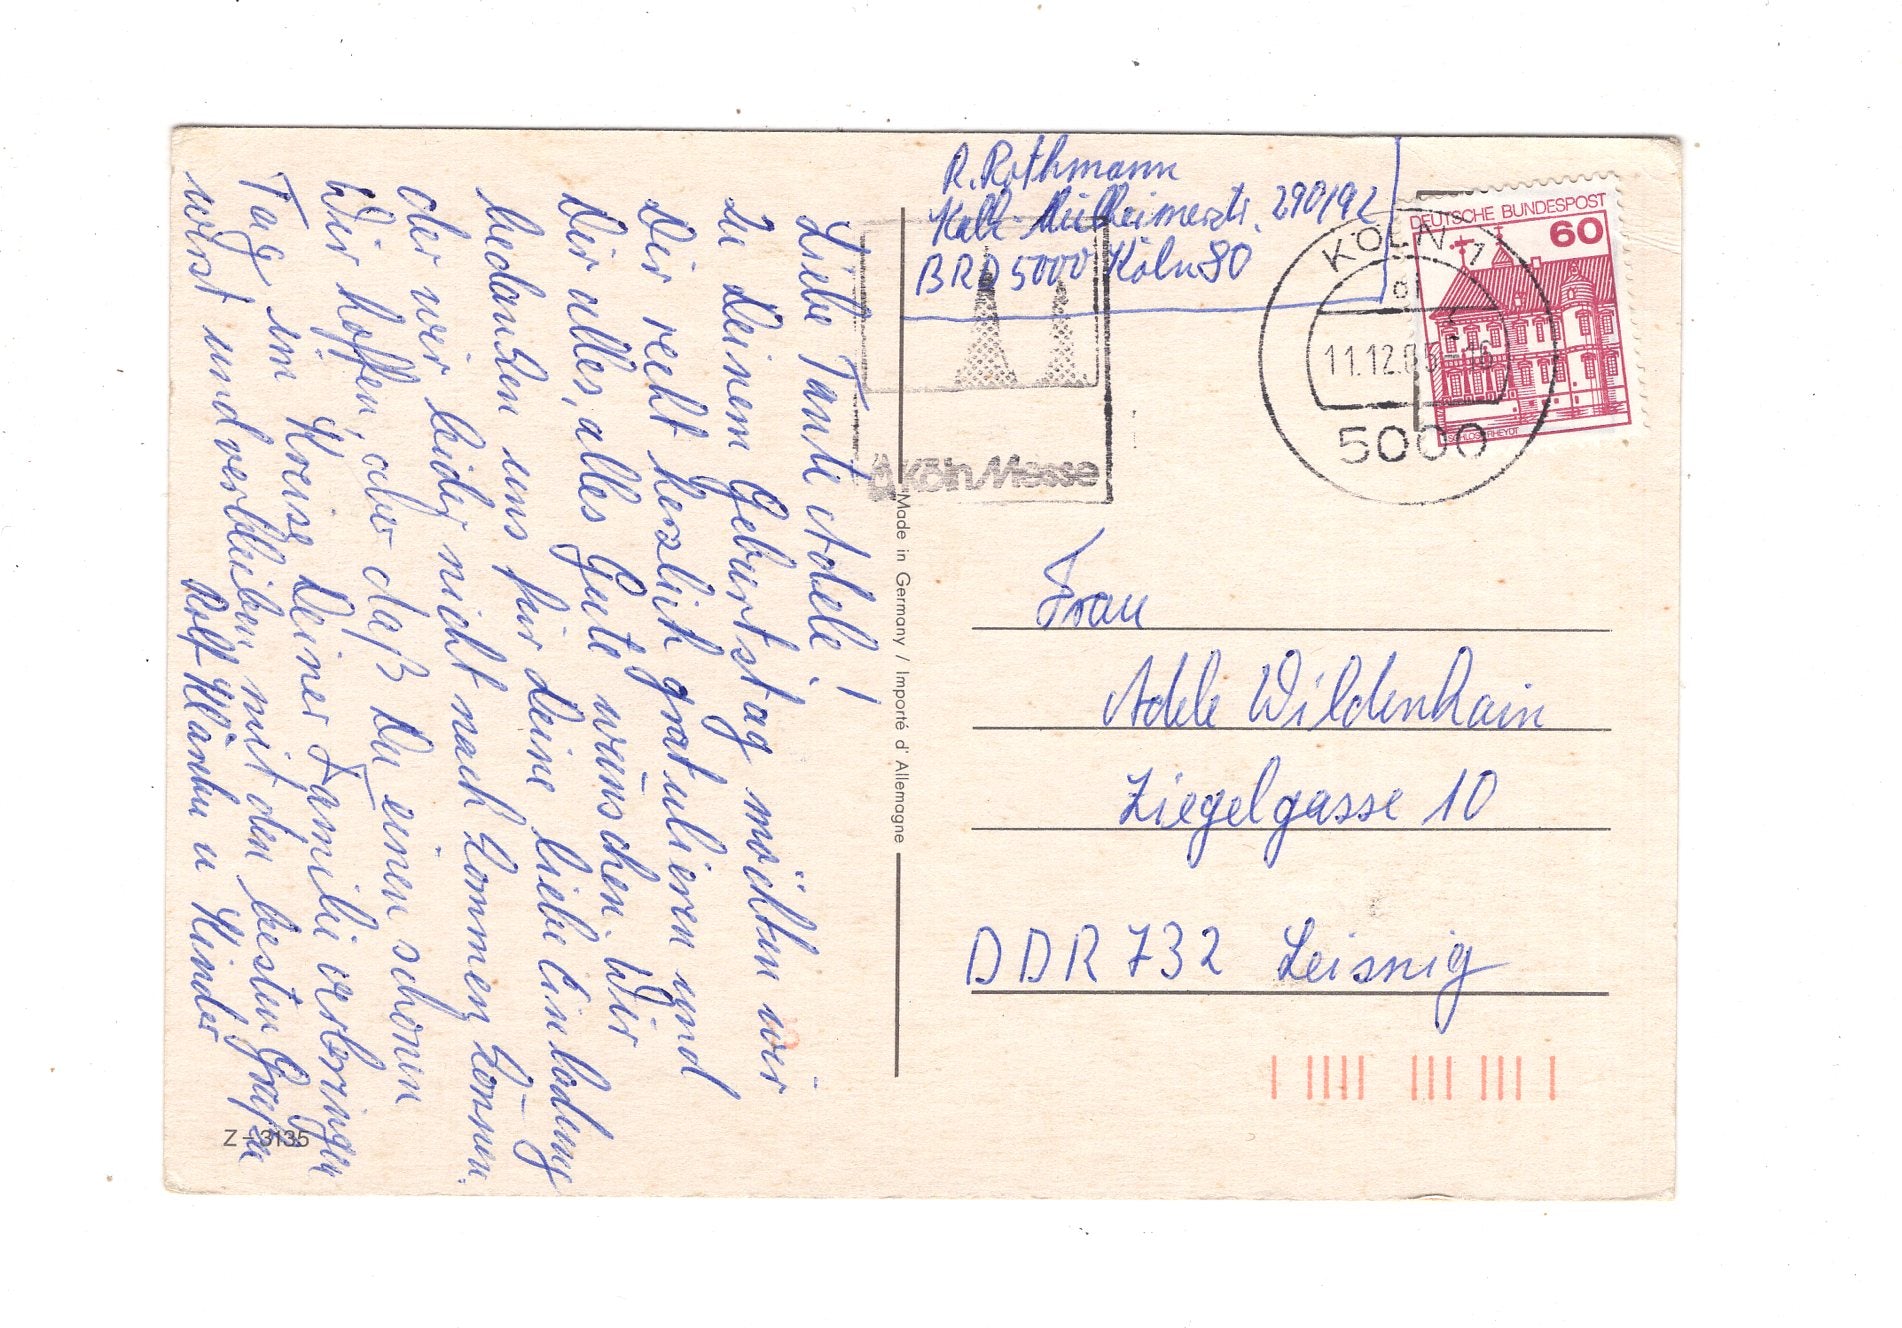 Liebe Tante Adele!
Zu Deinem Geburtstag möchten wir
Dir recht herzlich gratulieren und
Dir alles, alles Gute wünschen. Wir
bedanken uns für Deine liebe Einladung
der wir leider nicht nach kommen können.
Wir hoffen, aber daß Du einen schönen
Tag im Kreise Deiner Familie verbringen
wirst und verbleiben mit den besten Grüßen
Rolf Klärchen u Kinder
Z-3135
Made in Germany / Importé d'Allemagne
R. Rothmann
Kalk-Mülheimerstr. 290/92
BRD 5000 Köln 80
Köln Messe
KÖLN 1
11.12.8
5000
DEUTSCHE BUNDESPOST
60
SCHLOSS RHEYDT
Frau
Adele Wildenhain
Ziegelgasse 10
DDR 732 Leisnig